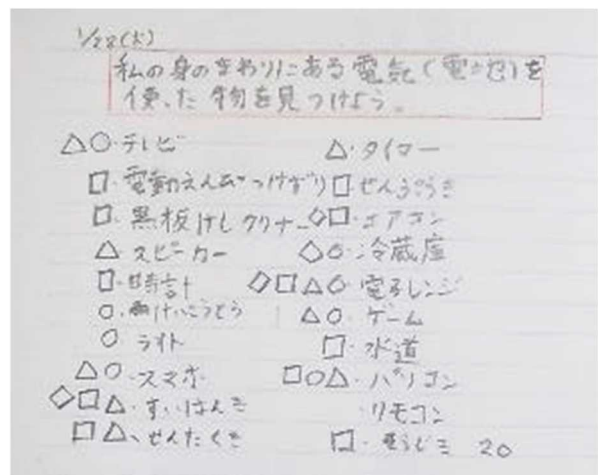 1/28(火)
私の身のまわりにある電気(電池)を
使った物を見つけよう。
△○・テレビ
□・電動えんぴつけずり
□・黒板けしクリーナー
△・スピーカー
□・時計
○・けいこうとう
○・ライト
△○・スマホ
◇□△・すいはんき
□△・せんたくき
△・タイマー
□・せんぷうき
◇□・エアコン
◇○・冷蔵庫
◇□△○・電子レンジ
△○・ゲーム
□・水道
□○△・パソコン
・リモコン
□・そうじき 20